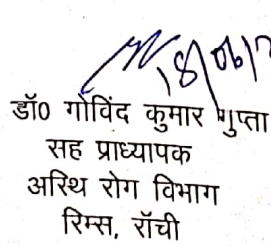 18/06/2
डॉ0 गोविंद कुमार गुप्ता
सह प्राध्यापक
अस्थि रोग विभाग
रिम्स, राँची